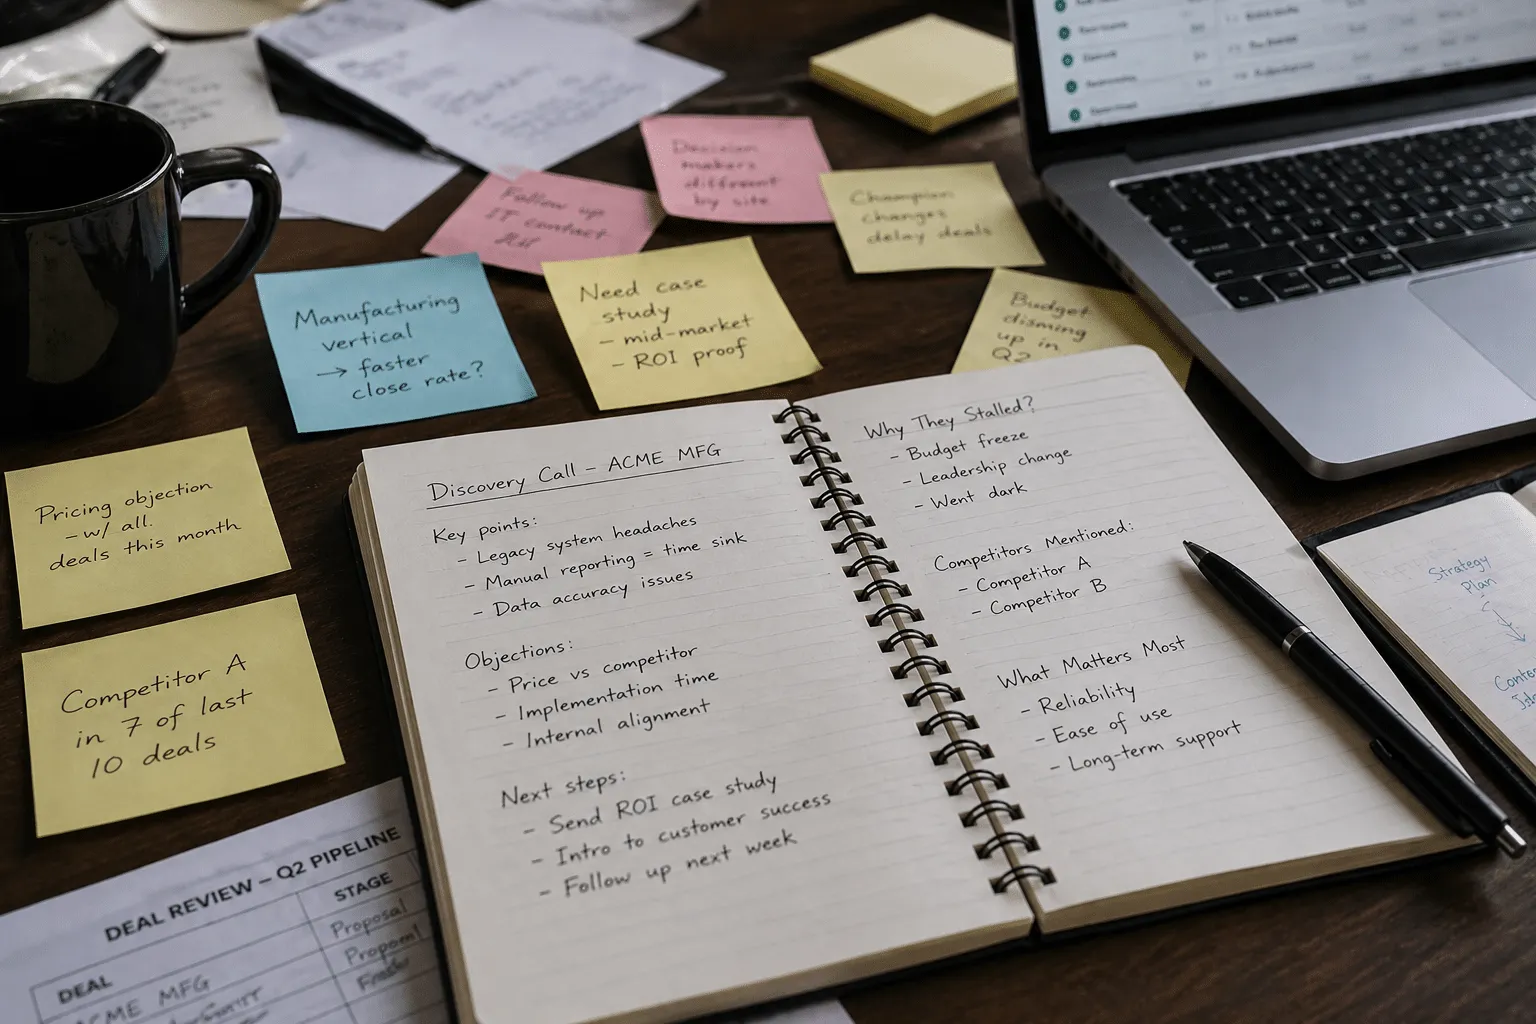 Decision
makers
different
by site
Follow up
IT contact
Champion
changes
delay deals
Manufacturing
vertical
→ faster
close rate?
Need case
study
- mid-market
- ROI proof
Budget
up in
Q2
Pricing objection
- w/ all.
deals this month
Competitor A
in 7 of last
10 deals
Discovery Call – ACME MFG
Key points:
- Legacy system headaches
- Manual reporting = time sink
- Data accuracy issues
Objections:
- Price vs competitor
- Implementation time
- Internal alignment
Next steps:
- Send ROI case study
- Intro to customer success
- Follow up next week
Why They Stalled?
- Budget freeze
- Leadership change
- Went dark
Competitors Mentioned:
- Competitor A
- Competitor B
What Matters Most
- Reliability
- Ease of use
- Long-term support
Strategy
Plan
DEAL REVIEW – Q2 PIPELINE
DEAL
STAGE
ACME MFG
Proposal